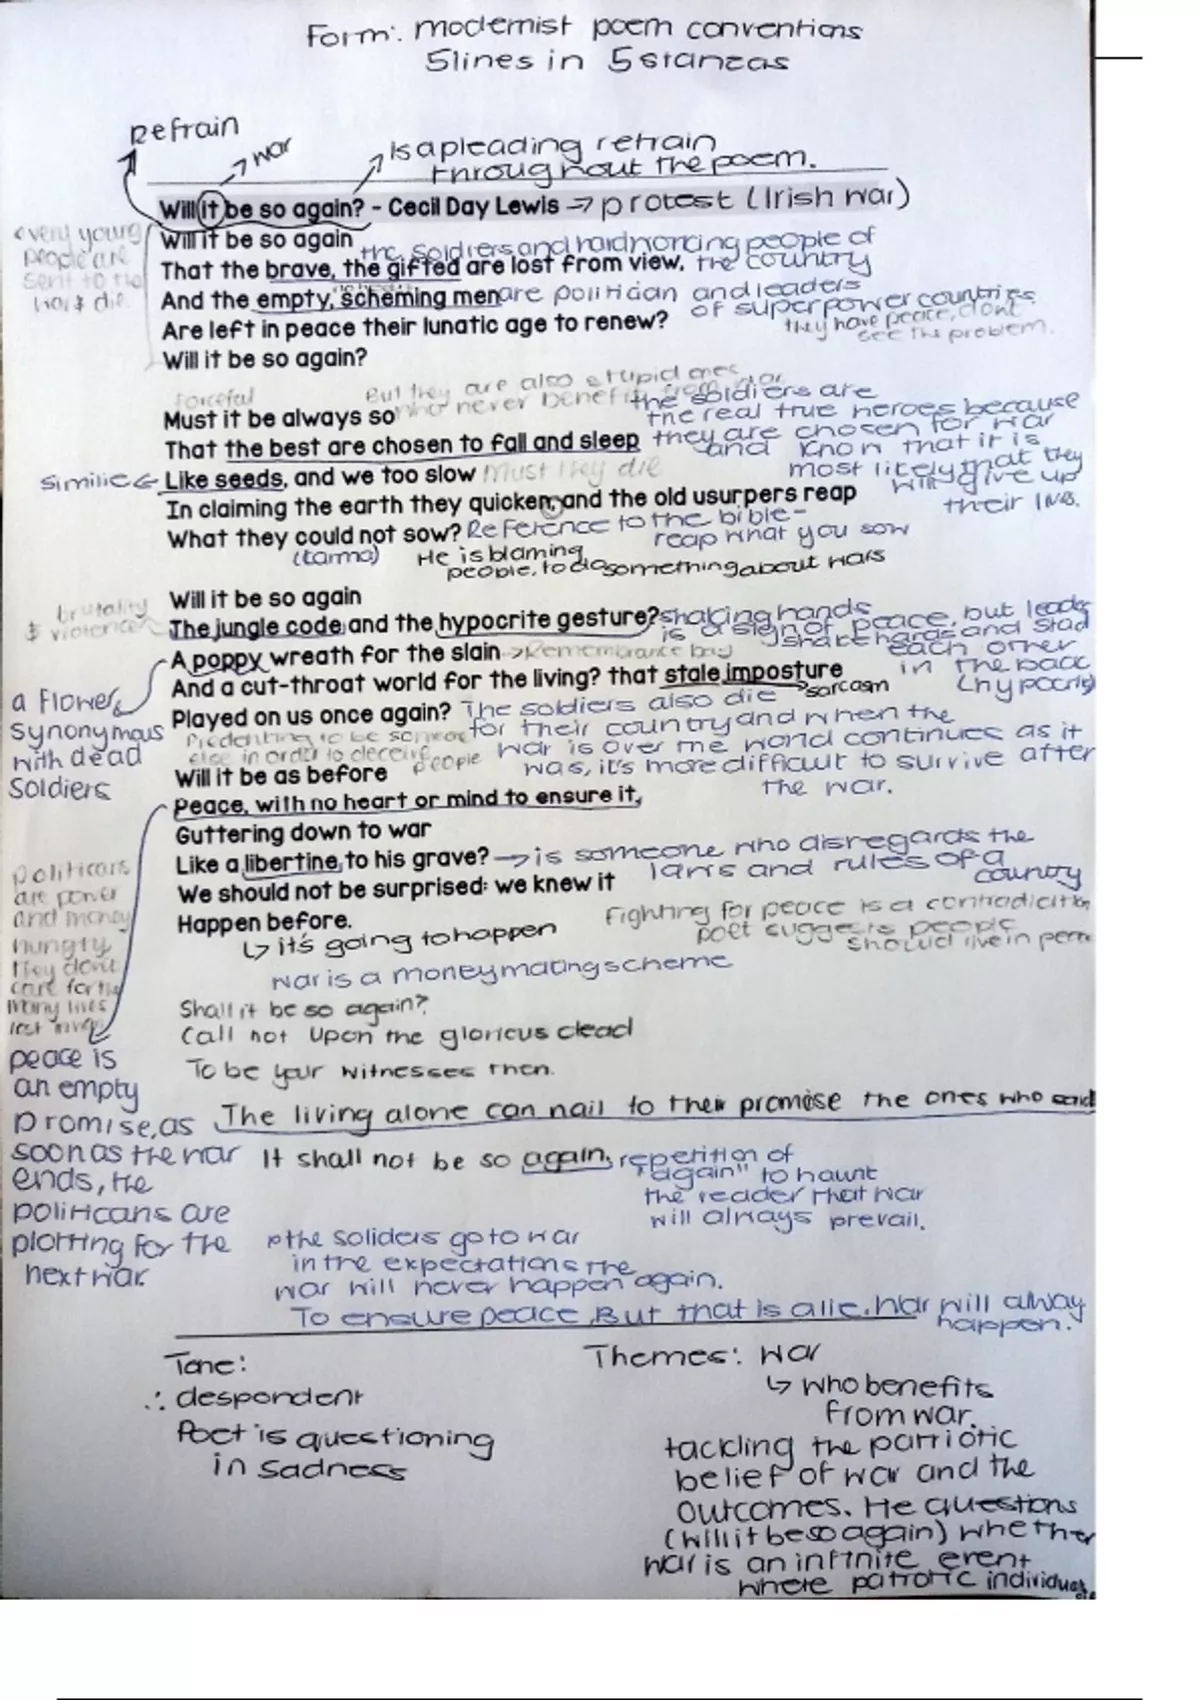 Form: modernist poem conventions
5 lines in 5 stanzas
Refrain
war
Is a pleading refrain
throughout the poem.
Will it be so again? - Cecil Day Lewis → protest (Irish war)
every young
people are
sent to the
war & die.
Will it be so again
the soldiers and hardworking people of
the country
That the brave, the gifted are lost from view,
And the empty, scheming men
are politician and leaders
of superpower countries
they have peace, dont
see the problem.
Are left in peace their lunatic age to renew?
Will it be so again?
forceful
But they are also stupid ones
who never benefit from war
Must it be always so
the soldiers are
the real true heroes because
they are chosen for war
and know that it is
most likely that they
will give up
their lives.
That the best are chosen to fall and sleep
similie ← Like seeds, and we too slow
Must they die
In claiming the earth they quicken, and the old usurpers reap
What they could not sow?
Reference to the bible-
reap what you sow
(karma)
He is blaming
people, to do something about wars
Will it be so again
brutality
& violence
The jungle code and the hypocrite gesture?
shaking hands
is a sign of peace, but leader
shake hands and stab
each other
in the back
(hypocrisy
A poppy wreath for the slain → Remembrance day
And a cut-throat world for the living? that stale imposture
sarcasm
a flower
synonymous
with dead
soldiers
Played on us once again?
The soldiers also die
for their country and when the
war is over the world continues as it
was, it's more difficult to survive after
the war.
Pretending to be someone
else in order to deceive
people
Will it be as before
Peace, with no heart or mind to ensure it,
Guttering down to war
Like a libertine to his grave? → is someone who disregards the
laws and rules of a
country
We should not be surprised: we knew it
Happen before.
↳ it's going to happen
Fighting for peace is a contradiction
poet suggests people
should live in peace
war is a money making scheme
Politicans
are power
and money
hungry
they dont
care for the
many lives
lost
peace is
an empty
promise, as
soon as the war
ends, the
politicans are
plotting for the
next war.
Shall it be so again?
Call not upon the glorious dead
To be your witnesses then.
The living alone can nail to their promise the ones who said
It shall not be so again.
repetition of
"again" to haunt
the reader that war
will always prevail.
the soliders go to war
in the expectations the
war will never happen again.
To ensure peace, But that is a lie. War will alway
happen.
Tone:
∴ despondent
Poet is questioning
in sadness
Themes: war
↳ who benefits
from war.
tackling the patriotic
belief of war and the
outcomes. He questions
(will it be so again) whether
war is an infinite event
where patriotic individuals